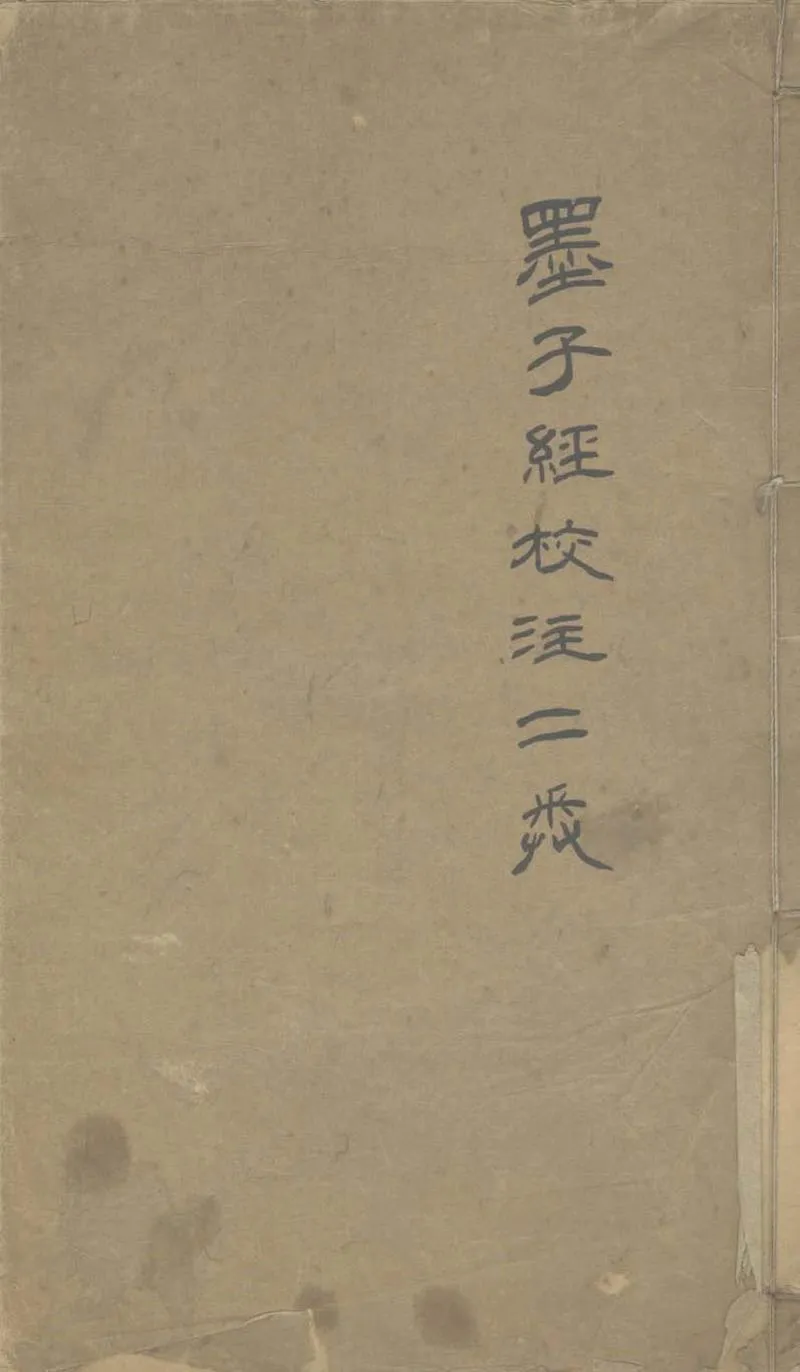 墨子經校注二卷